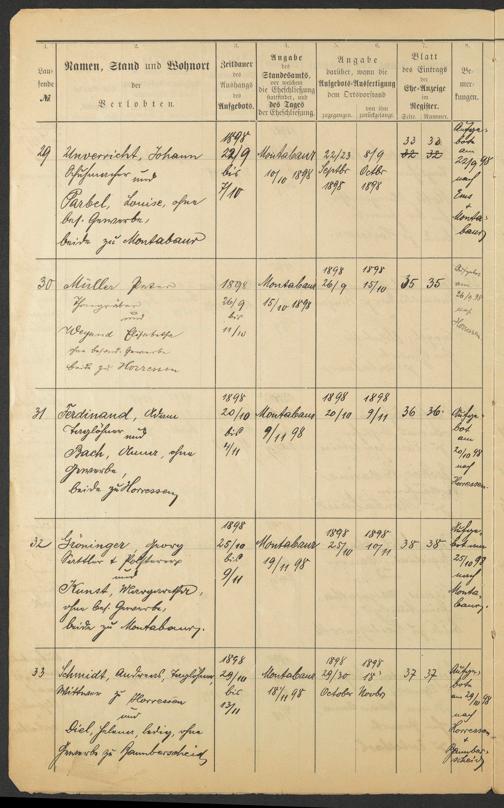 1. 2. 3. 4. 5. 6. 7. 8.
Lau-
fende
№
Namen, Stand und Wohnort
der
Verlobten.
Zeitdauer
des
Aushangs
des
Aufgebots.
Angabe
des
Standesamts,
vor welchem
die Eheschließung
stattfindet, und
des Tages
der Eheschließung.
Angabe
darüber, wann die
Aufgebots-Ausfertigung
dem Ortsvorstand
zugegangen.
von ihm
zurückgelangt.
Blatt
des Eintrags
der
Ehe-Anzeige
im
Register.
Seite. Nummer.
Be-
mer-
kungen.
29
Unverricht, Johann
Schuhmacher und
Parbel, Louise, ohne
bes. Gewerbe,
beide zu Montabaur
1898
22/9
bis
7/10
Montabaur
10/10 1898
22/23
Septbr
1898
8/9
Octbr
1898
33 33
32 32
Aufge-
bote
am
22/9 98
nach
Ems
+
Monta-
baur
30
Müller Peter
und
Wegand Elisabetha
ohne besond. Gewerbe
beide zu Horressen
1898
26/9
bis
11/10
Montabaur
15/10 1898
1898
26/9
1898
15/10
35 35
am
26/9 98
nach
Horressen
31
Ferdinand, Adam
Taglöhner und
Bach, Anna, ohne
Gewerbe,
beide zu Horressen
1898
20/10
bis
4/11
Montabaur
9/11 98
1898
20/10
1898
9/11
36 36
Aufge-
bot
am
20/10 98
nach
Horressen
32
Gröninger, Georg
Sattler + Polsterer
und
Kunst, Margaretha,
ohne bes. Gewerbe,
beide zu Montabaur
1898
25/10
bis
9/11
Montabaur
19/11 98
1898
25/10
1898
10/11
38 38
Aufge-
bot am
25/10 98
nach
Monta-
baur
33
Schmidt, Andreas, Taglöhner,
Wittwer zu Horressen
und
Diel, Helena, ledig, ohne
Gewerbe zu Dannberscheid
1898
29/10
bis
13/11
Montabaur
18/11 98
1898
29/30
October
1898
Novbr
37 37
Aufge-
bote
am 29/10 98
nach
Horressen
+